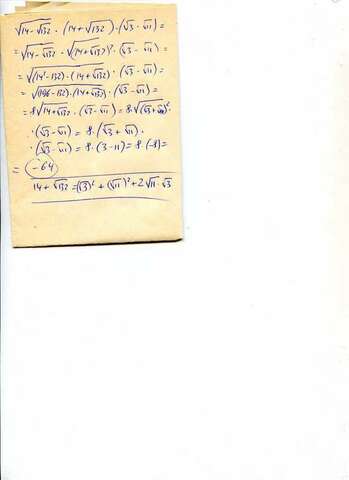 √14-√132 · (14+√132) · (√3 · √11) =
= √14-√132 · √(14+√132)² · (√3 - √11) =
= √(14²-132) · (14+√132) · (√3 - √11) =
= √(196-132) · (14+√132) · (√3 - √11) =
= 8√14+√132 · (√3 - √11) = 8·√(√3+√11)² ·
· (√3 - √11) = 8 · (√3 + √11) ·
· (√3 - √11) = 8 · (3-11) = 8·(-8) =
= -64
14 + √132 = (√3)² + (√11)² + 2√11 · √3